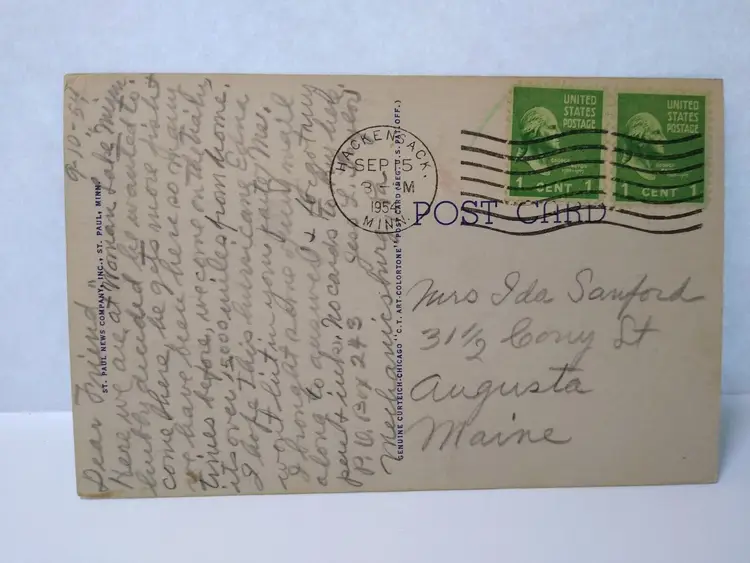 9-10-54
Dear Friend
here we are at Woman Lake Minn
hubby decided he wanted to
come there, he gets more fish
we have been here so many
times before, we come on the train
its over 1500 miles from home.
I hope this hurricane Edna
won't hit in your party Me.
I brought all my mail
along to answer & forgot my
pen & ink. No cards to
P.O. Box 243
Mechanicsburg
ST. PAUL NEWS COMPANY, INC., ST. PAUL, MINN.
GENUINE CURTEICH-CHICAGO "C.T. ART-COLORTONE" POST CARD (REG. U.S. PAT. OFF.)
HACKENSACK.
SEP 15
PM
1954
MINN.
UNITED
STATES
POSTAGE
1 CENT 1
UNITED
STATES
POSTAGE
1 CENT 1
POST CARD
Mrs Ida Sanford
31½ Cony St
Augusta
Maine